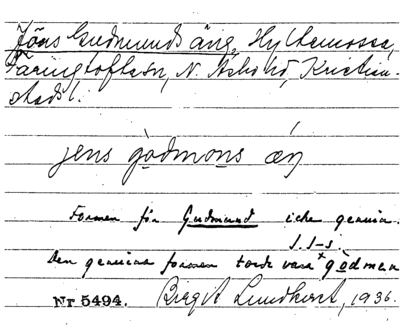 Jöns Gudmunds äng, Hyltemossa,
Färingtoftasn, N. Åsbo hd, Kristian-
stads l.
jens gòdmons æŋ
Formen för Gudmund icke genuin.
I. I-s.
Den genuina formen torde vara *gòdmen
Nr 5494. Birgit Lundkvist, 1936.